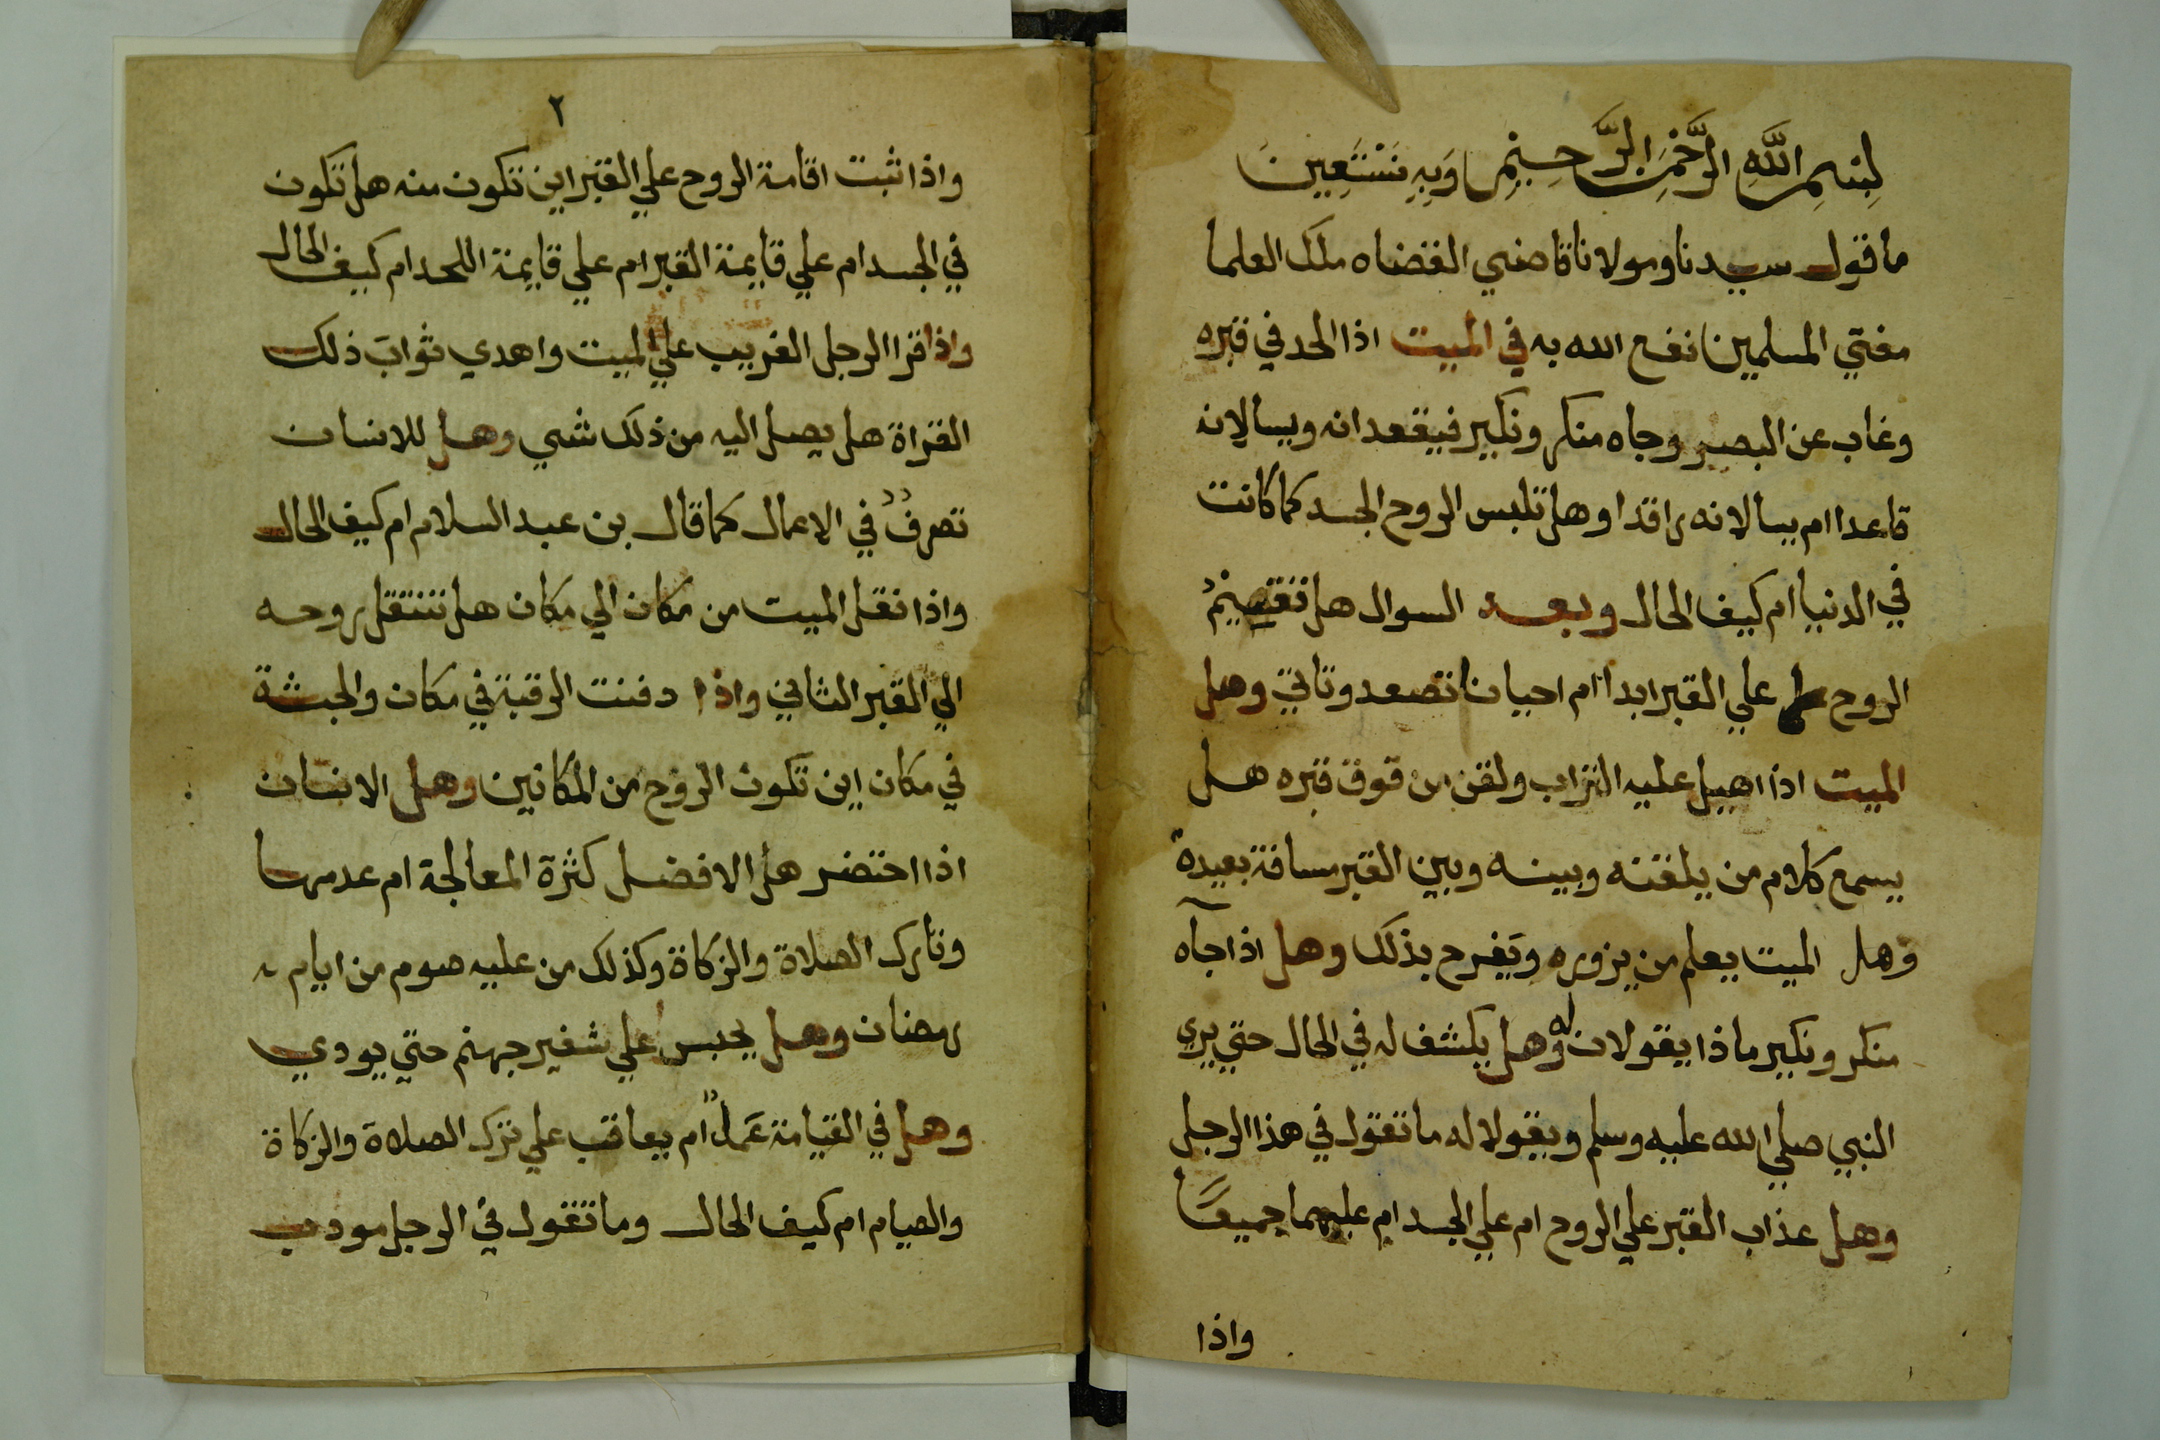 بِسْمِ اللَّهِ الرَّحْمَنِ الرَّحِيمِ وَبِهِ نَسْتَعِينَ
ما قول سيدنا ومولانا قاضي القضاه ملك العلما
مفتي المسلمين نفع الله به في الميت اذا الحد في قبره
وغاب عن البصر وجاه منكر ونكير فيقعدانه ويسالانه
قاعدا ام يسالانه راقدا وهل تلبس الروح الجسد كما كانت
في الدنيا ام كيف الحال وبعد السوال هل تقيم
الروح علي القبر ابدا ام احيانا تصعد وتاتي وهل
الميت اذا اهيل عليه التراب ولقن من فوق قبره هل
يسمع كلام من يلقنه وبينه وبين القبر مسافة بعيدة
وهل الميت يعلم من يزوره ويفرح بذلك وهل اذا جآه
منكر ونكير ماذا يقولان له وهل يكشف له في الحال حتي يري
النبي صلي الله عليه وسلم ويقولا له ما تقول في هذا الرجل
وهل عذاب القبر علي الروح ام علي الجسد ام عليهما جميعًا
واذا
٢
واذا ثبت اقامة الروح علي القبر اين تكون منه هل تكون
في الجسد ام علي قايمة القبر ام علي قايمة اللحد ام كيف الحال
واذا قرا الرجل الغريب علي الميت واهدي ثواب ذلك
القراة هل يصل اليه من ذلك شي وهل للانسان
تصرفٌ في الاعمال كما قال بن عبد السلام ام كيف الحال
واذا نقل الميت من مكان الي مكان هل تنتقل روحه
الي القبر الثاني واذا دفنت الرقبة في مكان والجثة
في مكان اين تكون الروح من المكانين وهل الانسان
اذا احتضر هل الافضل كثرة المعالجة ام عدمها
وتارك الصلاة والزكاة وكذلك من عليه صوم من ايام
رمضان وهل يحبس علي شفير جهنم حتي يودي
وهل في القيامة عَملاً ام يعاقب علي ترك الصلاة والزكاة
والصيام ام كيف الحال وما تقول في الرجل مودب